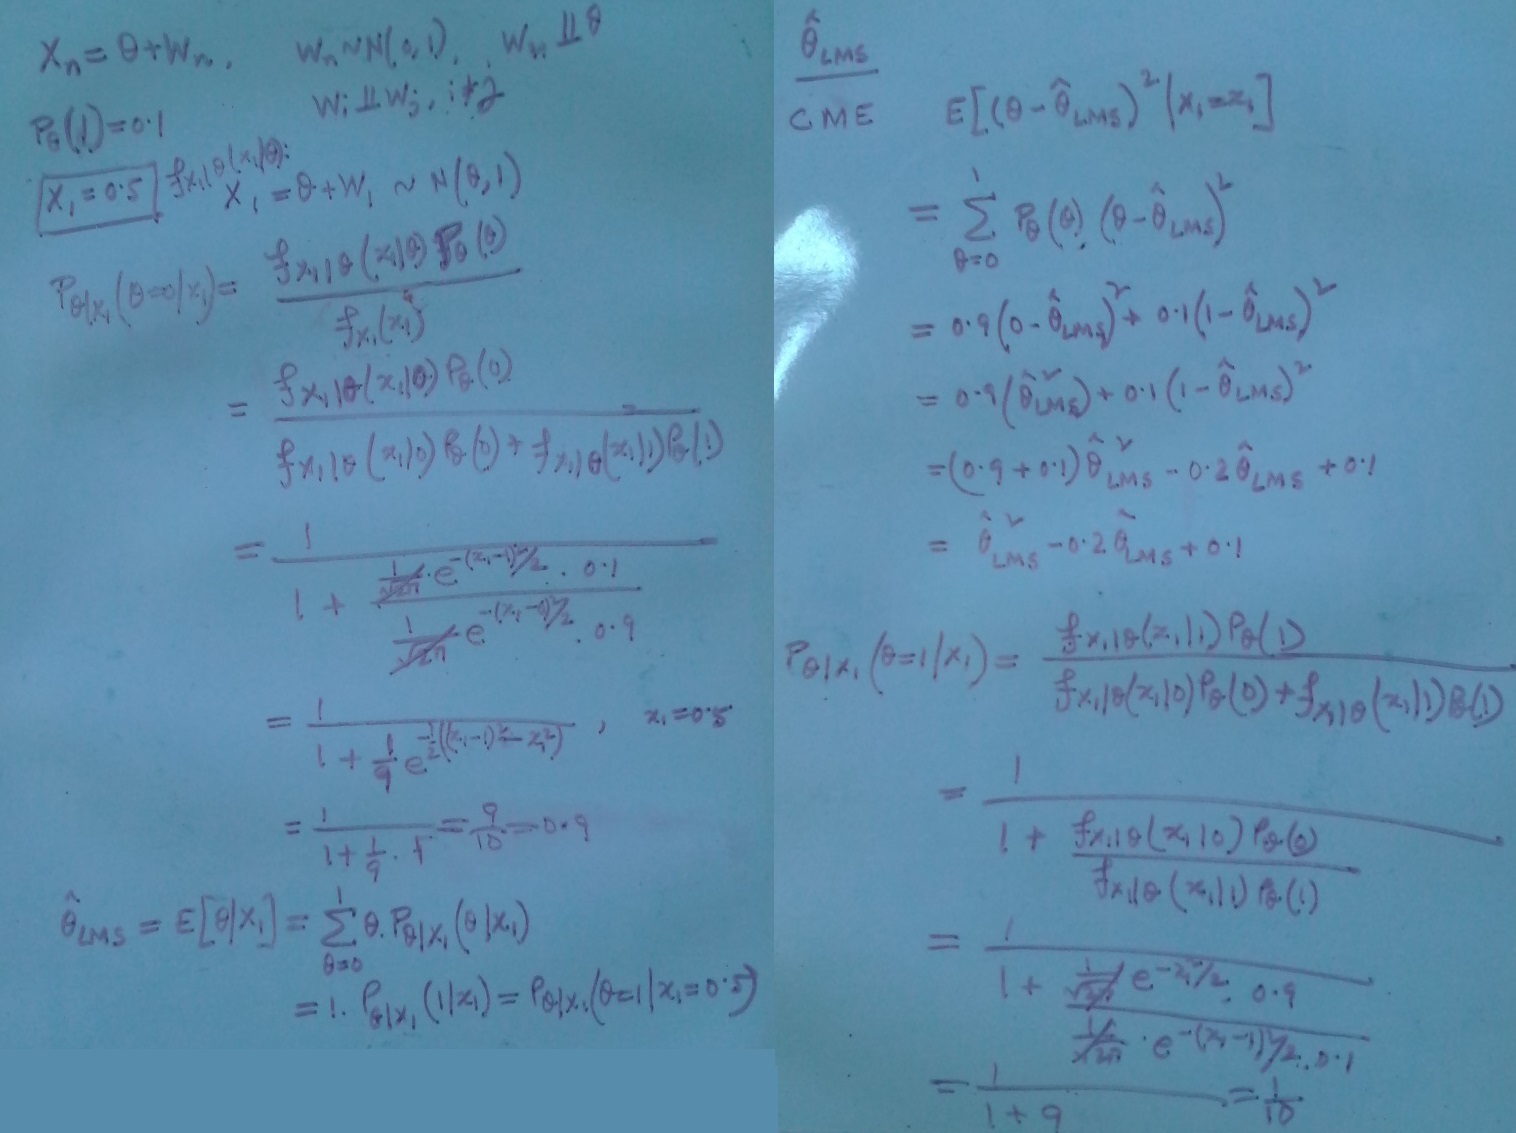 Xₙ = θ + Wₙ, Wₙ ~ N(0,1), Wₙ ⫫ θ
P_θ(1) = 0.1 Wᵢ ⫫ Wⱼ, i≠j
X₁ = 0.5 f_{X₁|θ}(x₁|θ):
X₁ = θ + W₁ ~ N(θ,1)
P_{θ|X₁}(θ=0|x₁) = f_{X₁|θ}(x₁|θ) P_θ(θ) / f_{X₁}(x₁)
= f_{X₁|θ}(x₁|0) P_θ(0) / f_{X₁|θ}(x₁|0) P_θ(0) + f_{X₁|θ}(x₁|1) P_θ(1)
= 1 / 1 + (1/√2π · e^{-(x₁-1)²/2} · 0.1) / (1/√2π e^{-(x₁-0)²/2} · 0.9)
= 1 / 1 + 1/9 e^{-1/2((x₁-1)² - x₁²)} , x₁ = 0.5
= 1 / 1 + 1/9 · 1 = 9/10 = 0.9
θ̂_LMS = E[θ|X₁] = Σ_{θ=0}^{1} θ. P_{θ|X₁}(θ|x₁)
= 1. P_{θ|X₁}(1|x₁) = P_{θ|X₁}(θ=1|x₁=0.5)
θ̂_LMS
CME E[(θ - θ̂_LMS)² | X₁=x₁]
= Σ_{θ=0}^{1} P_θ(θ) (θ - θ̂_LMS)²
= 0.9(0 - θ̂_LMS)² + 0.1(1 - θ̂_LMS)²
= 0.9(θ̂²_LMS) + 0.1(1 - θ̂_LMS)²
= (0.9 + 0.1) θ̂²_LMS - 0.2 θ̂_LMS + 0.1
= θ̂²_LMS - 0.2 θ̂_LMS + 0.1
P_{θ|X₁}(θ=1|X₁) = f_{X₁|θ}(x₁|1) P_θ(1) / f_{X₁|θ}(x₁|0) P_θ(0) + f_{X₁|θ}(x₁|1) P_θ(1)
= 1 / 1 + f_{X₁|θ}(x₁|0) P_θ(0) / f_{X₁|θ}(x₁|1) P_θ(1)
= 1 / 1 + (1/√2π e^{-x₁²/2} · 0.9) / (1/√2π · e^{-(x₁-1)²/2} · 0.1)
= 1 / 1 + 9 = 1/10